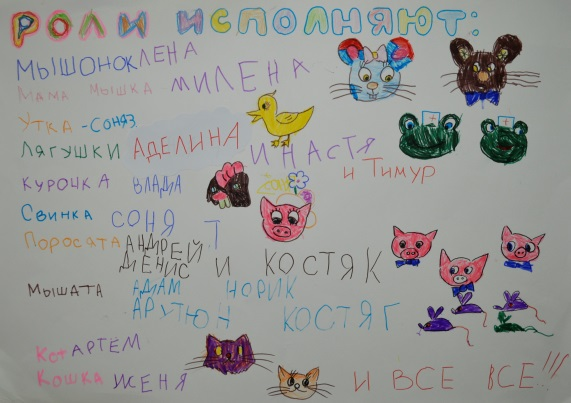 РОЛИ ИСПОЛНЯЮТ:
МЫШОНОК ЛЕНА
МАМА МЫШКА МИЛЕНА
УТКА - СОНЯ З.
ЛЯГУШКИ АДЕЛИНА И НАСТЯ
И ТИМУР
КУРОЧКА ВЛАДА
СВИНКА СОНЯ Т
ПОРОСЯТА АНДРЕЙ
ДЕНИС И КОСТЯ К
МЫШАТА АДАМ НОРИК
АРУТЮН КОСТЯ Г
КОТ АРТЕМ
КОШКА ЖЕНЯ И ВСЕ ВСЕ!!!